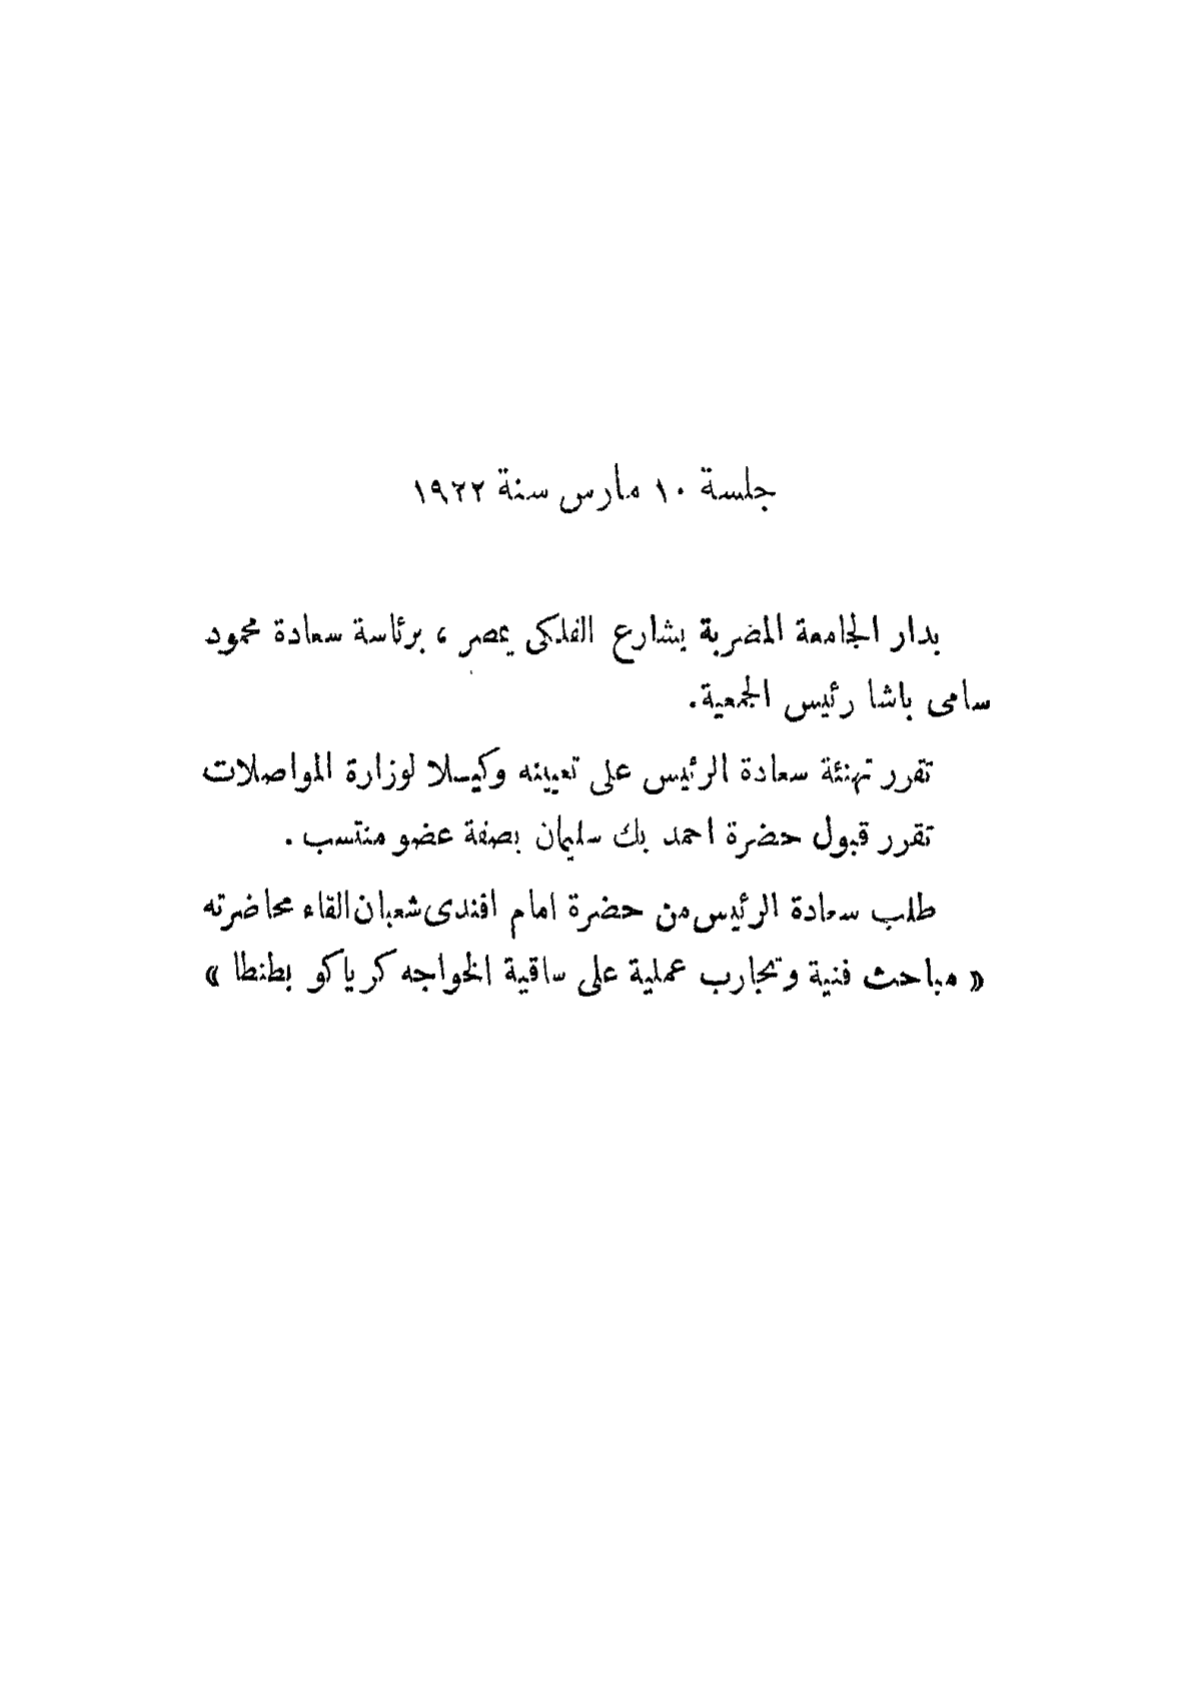 جلسة ١٠ مارس سنة ١٩٢٢
بدار الجامعة المضرية بشارع الفلكى بمصر ، برئاسة سعادة محمود
سامى باشا رئيس الجمعية .
تقرر تهنئة سعادة الرئيس على تعيينه وكيلا لوزارة المواصلات
تقرر قبول حضرة احمد بك سليمان بصفة عضو منتسب .
طلب سعادة الرئيس من حضرة امام افندى شعبان القاء محاضرته
« مباحث فنية وتجارب عملية على ساقية الخواجه كرياكو بطنطا »